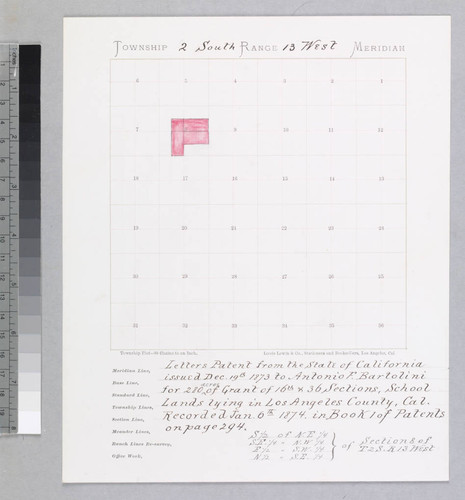 Township 2 South Range 13 West Meridian
6 5 4 3 2 1
7 9 10 11 12
18 17 16 15 14 13
19 20 21 22 23 24
30 29 28 27 26 25
31 32 33 34 35 36
Township Plat
Letters Patent from the State of California
issued Dec. 19th 1873 to Antonio F. Bartolini
for 280 acres of Grant of 16th & 36 Sections, School
Lands lying in Los Angeles County, Cal.
Recorded Jan. 6th 1874. in Book 1 of Patents
on page 294.
Meridian Line,
Base Line,
Standard Line,
Township Lines,
Section Line,
Meander Lines,
Ranch Lines Re-survey,
Office Work,
S 1/2 of N.E. 1/4
N 1/2 " S.E. 1/4
of Section 8 of
T 2 S. R 13 West